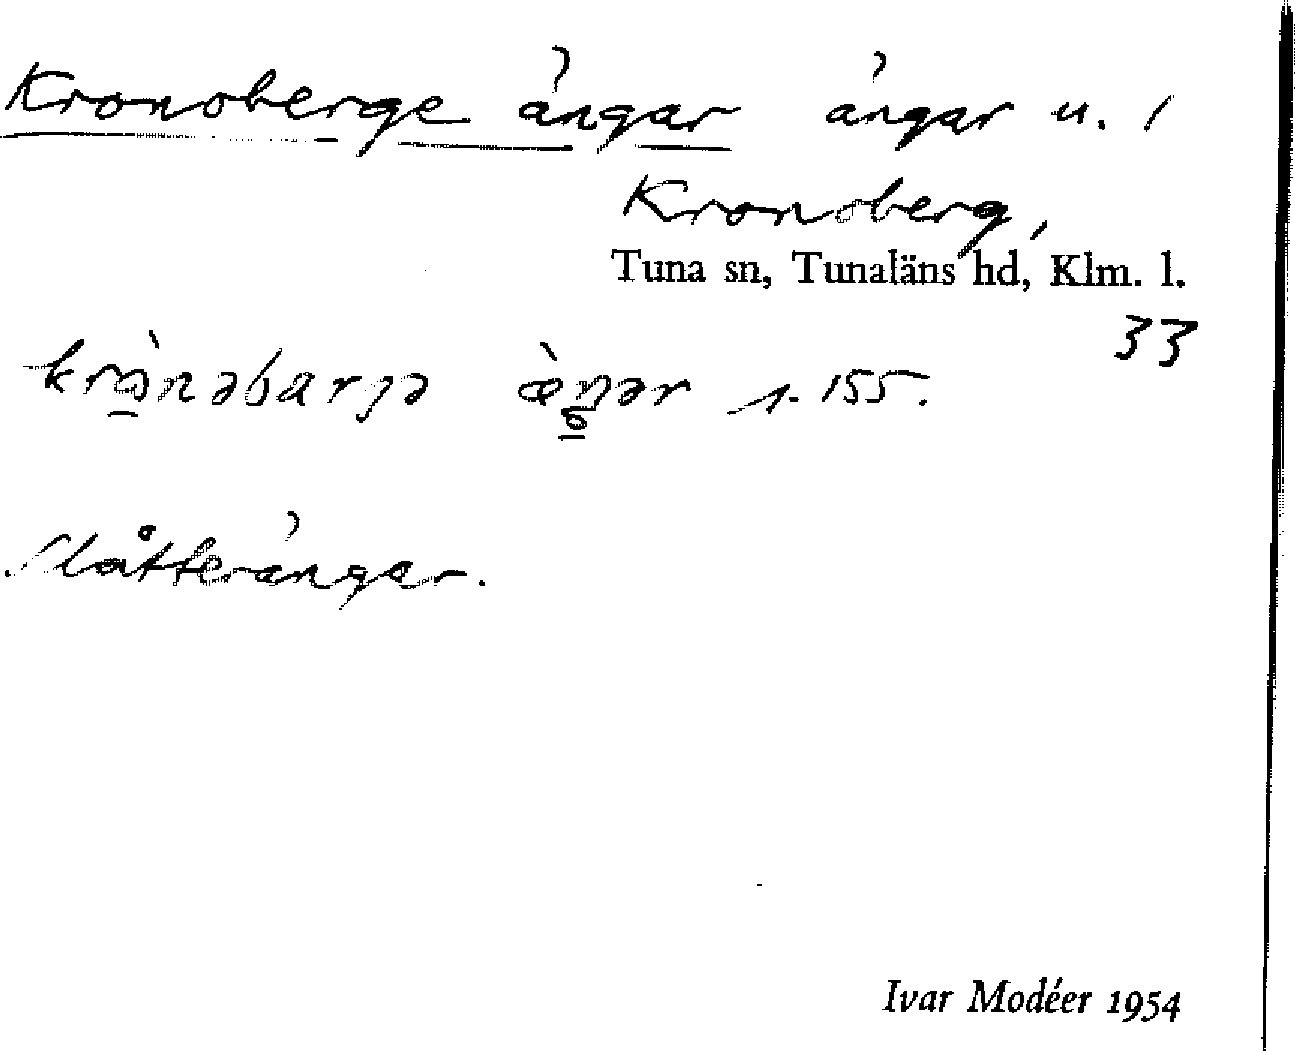 Kronoberge ängar ängar u. /
Kronoberg,
Tuna sn, Tunaläns hd, Klm. l.
33
krònəbarjə æ̀ŋər s. 155.
Slåtterängar.
Ivar Modéer 1954